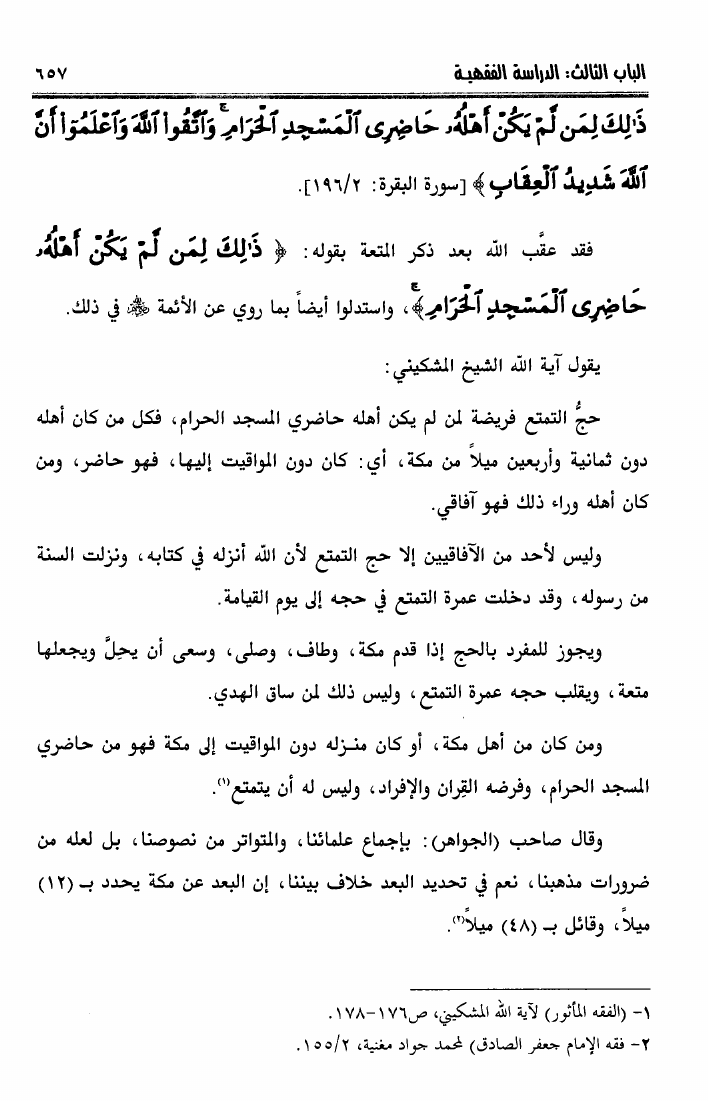 الباب الثالث: الدراسة الفقهية ٦٥٧
ذَٰلِكَ لِمَن لَّمْ يَكُنْ أَهْلُهُۥ حَاضِرِى ٱلْمَسْجِدِ ٱلْحَرَامِ ۚ وَٱتَّقُوا۟ ٱللَّهَ وَٱعْلَمُوٓا۟ أَنَّ
ٱللَّهَ شَدِيدُ ٱلْعِقَابِ ﴾ [سورة البقرة: ١٩٦/٢].
فقد عقَّب الله بعد ذكر المتعة بقوله: ﴿ ذَٰلِكَ لِمَن لَّمْ يَكُنْ أَهْلُهُۥ
حَاضِرِى ٱلْمَسْجِدِ ٱلْحَرَامِ ۚ ﴾، واستدلوا أيضاً بما روي عن الأئمة في ذلك.
يقول آية الله الشيخ المشكيني:
حجُّ التمتع فريضة لمن لم يكن أهله حاضري المسجد الحرام، فكل من كان أهله
دون ثمانية وأربعين ميلاً من مكة، أي: كان دون المواقيت إليها، فهو حاضر، ومن
كان أهله وراء ذلك فهو آفاقي.
وليس لأحد من الآفاقيين إلا حج التمتع لأن الله أنزله في كتابه، ونزلت السنة
من رسوله، وقد دخلت عمرة التمتع في حجه إلى يوم القيامة.
ويجوز للمفرد بالحج إذا قدم مكة، وطاف، وصلى، وسعى أن يحِلَّ ويجعلها
متعة، ويقلب حجه عمرة التمتع، وليس ذلك لمن ساق الهدي.
ومن كان من أهل مكة، أو كان منـزله دون المواقيت إلى مكة فهو من حاضري
المسجد الحرام، وفرضه القِران والإفراد، وليس له أن يتمتع(١).
وقال صاحب (الجواهر): بإجماع علمائنا، والمتواتر من نصوصنا، بل لعله من
ضرورات مذهبنا، نعم في تحديد البعد خلاف بيننا، إن البعد عن مكة يحدد بـ (١٢)
ميلاً، وقائل بـ (٤٨) ميلاً(٢).
١- (الفقه المأثور) لآية الله المشكيني، ص١٧٦-١٧٨.
٢- فقه الإمام جعفر الصادق) لمحمد جواد مغنية، ١٥٥/٢.